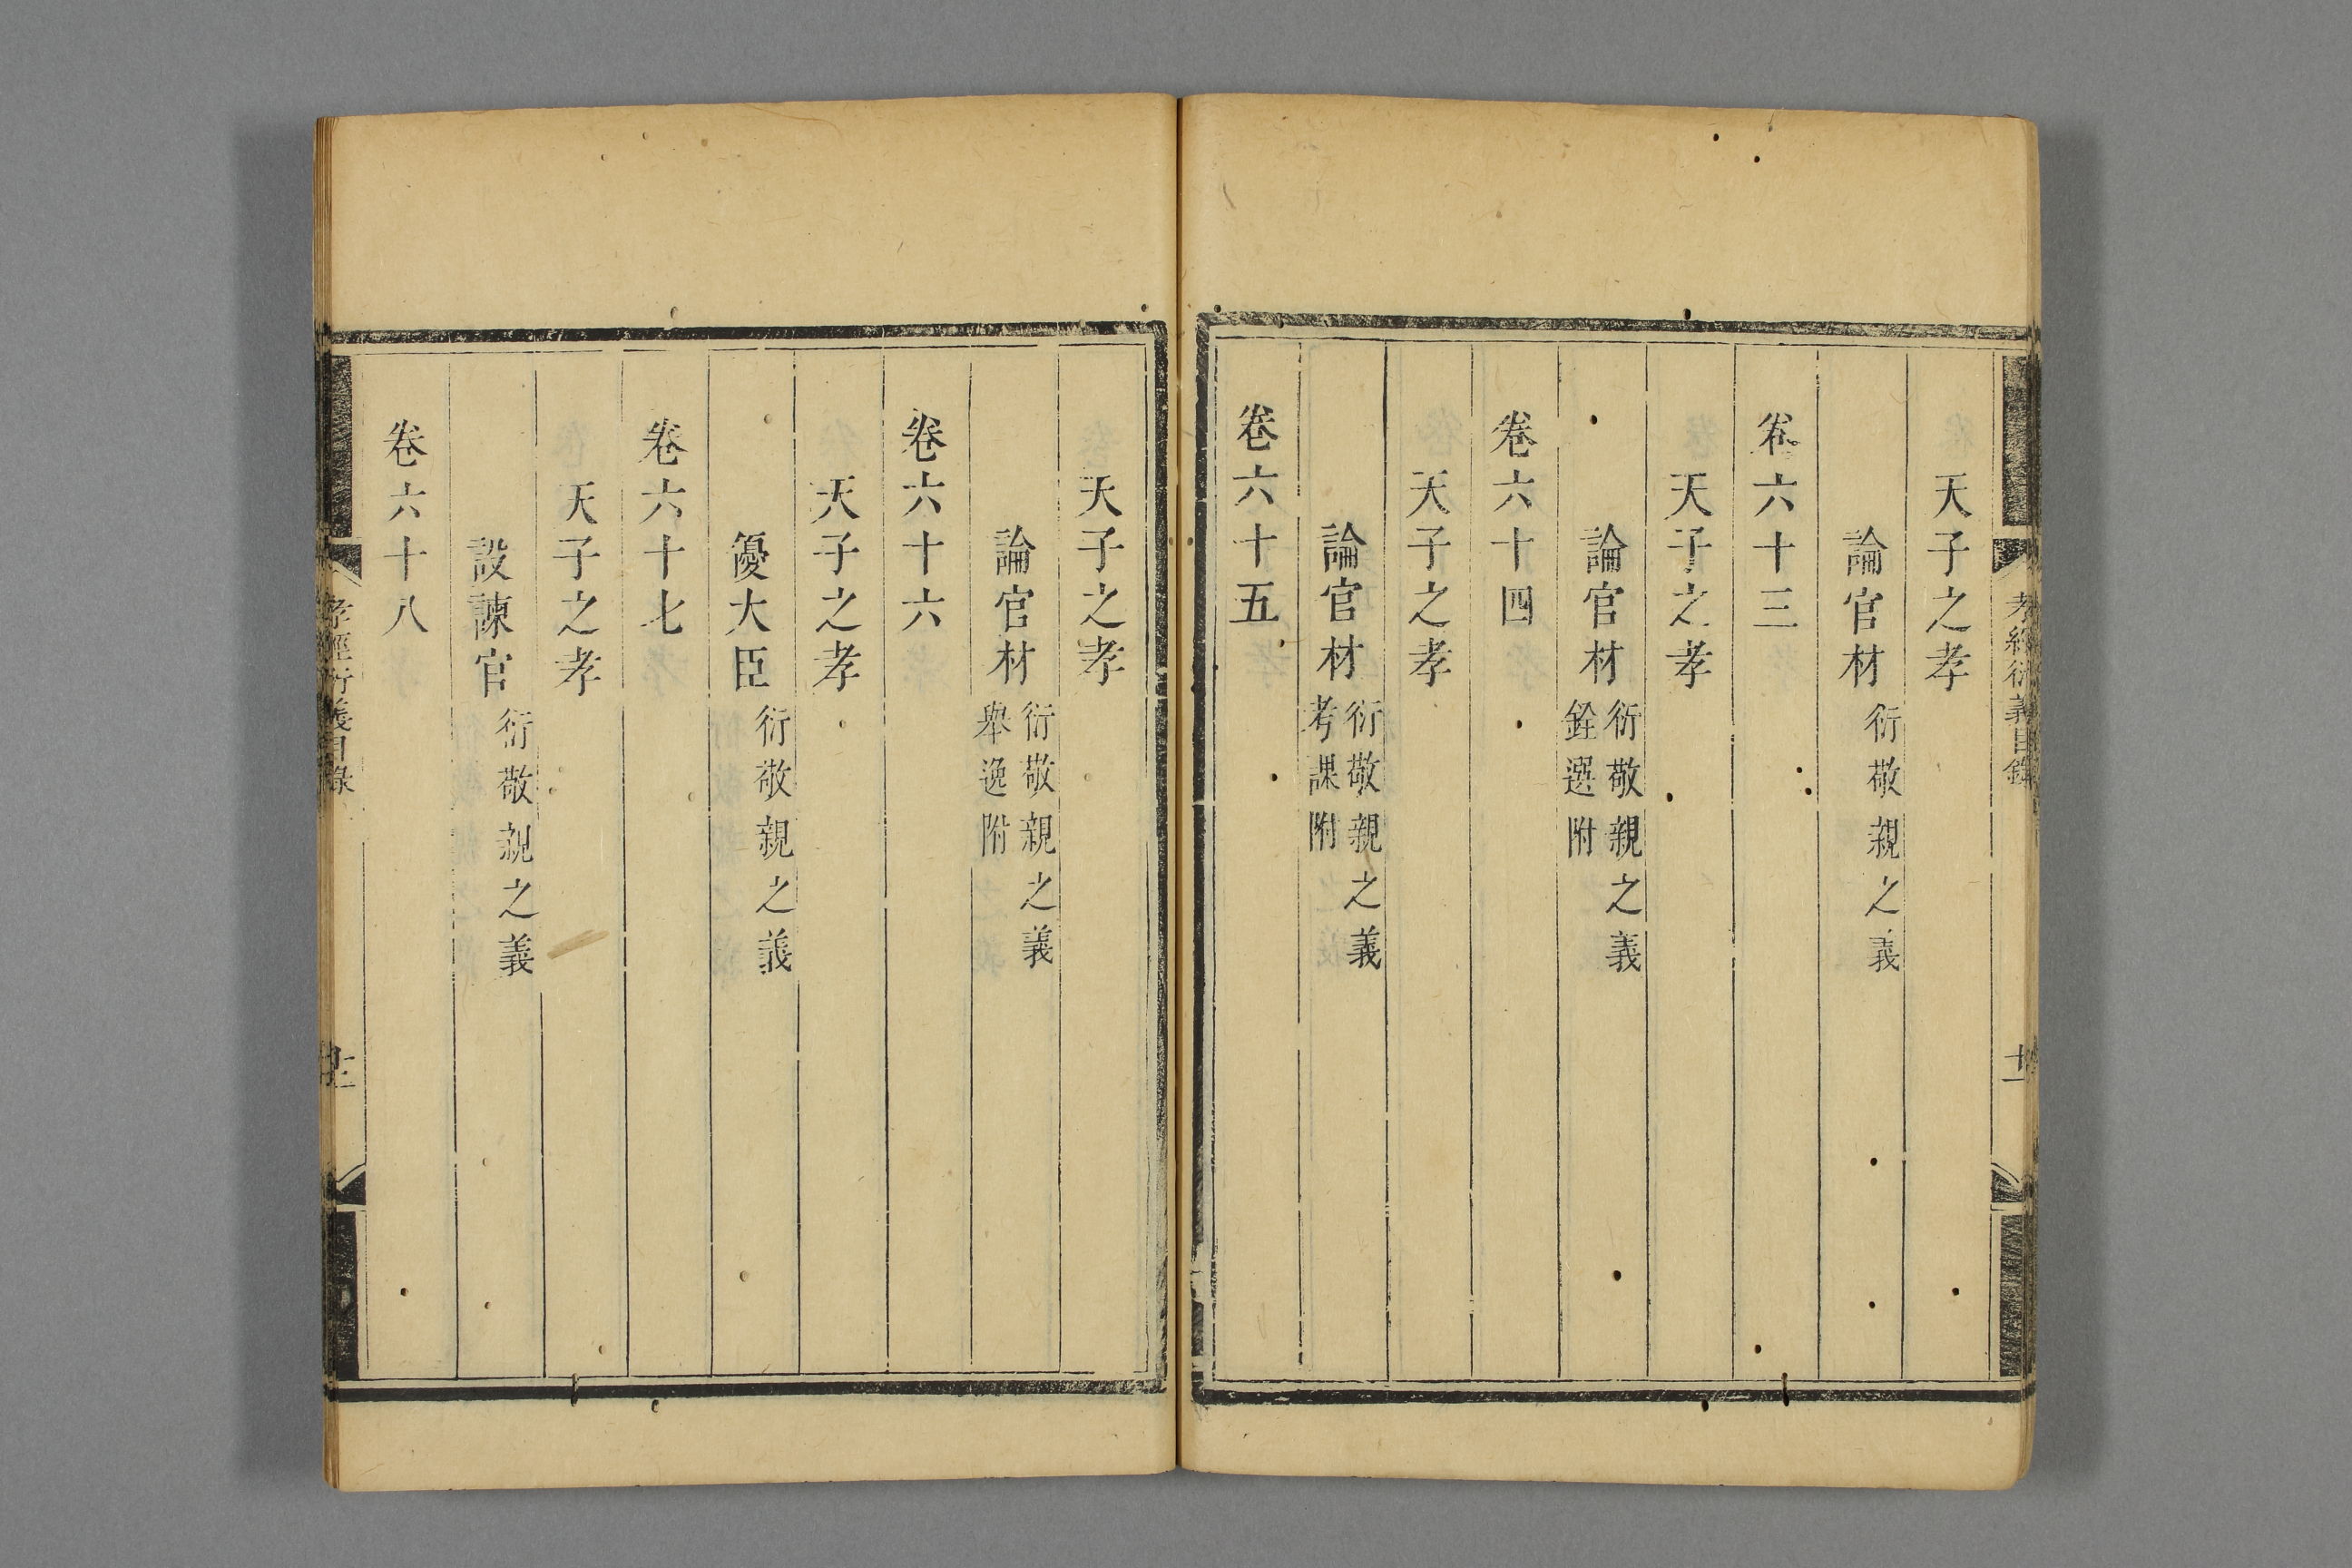 孝經衍義目錄
天子之孝
論官材
衍敬親之義
卷六十三
天子之孝
論官材
衍敬親之義
銓選附
卷六十四
天子之孝
論官材
衍敬親之義
考課附
卷六十五
天子之孝
論官材
衍敬親之義
舉逸附
卷六十六
天子之孝
優大臣
衍敬親之義
卷六十七
天子之孝
設諫官
衍敬親之義
卷六十八
孝經衍義目錄